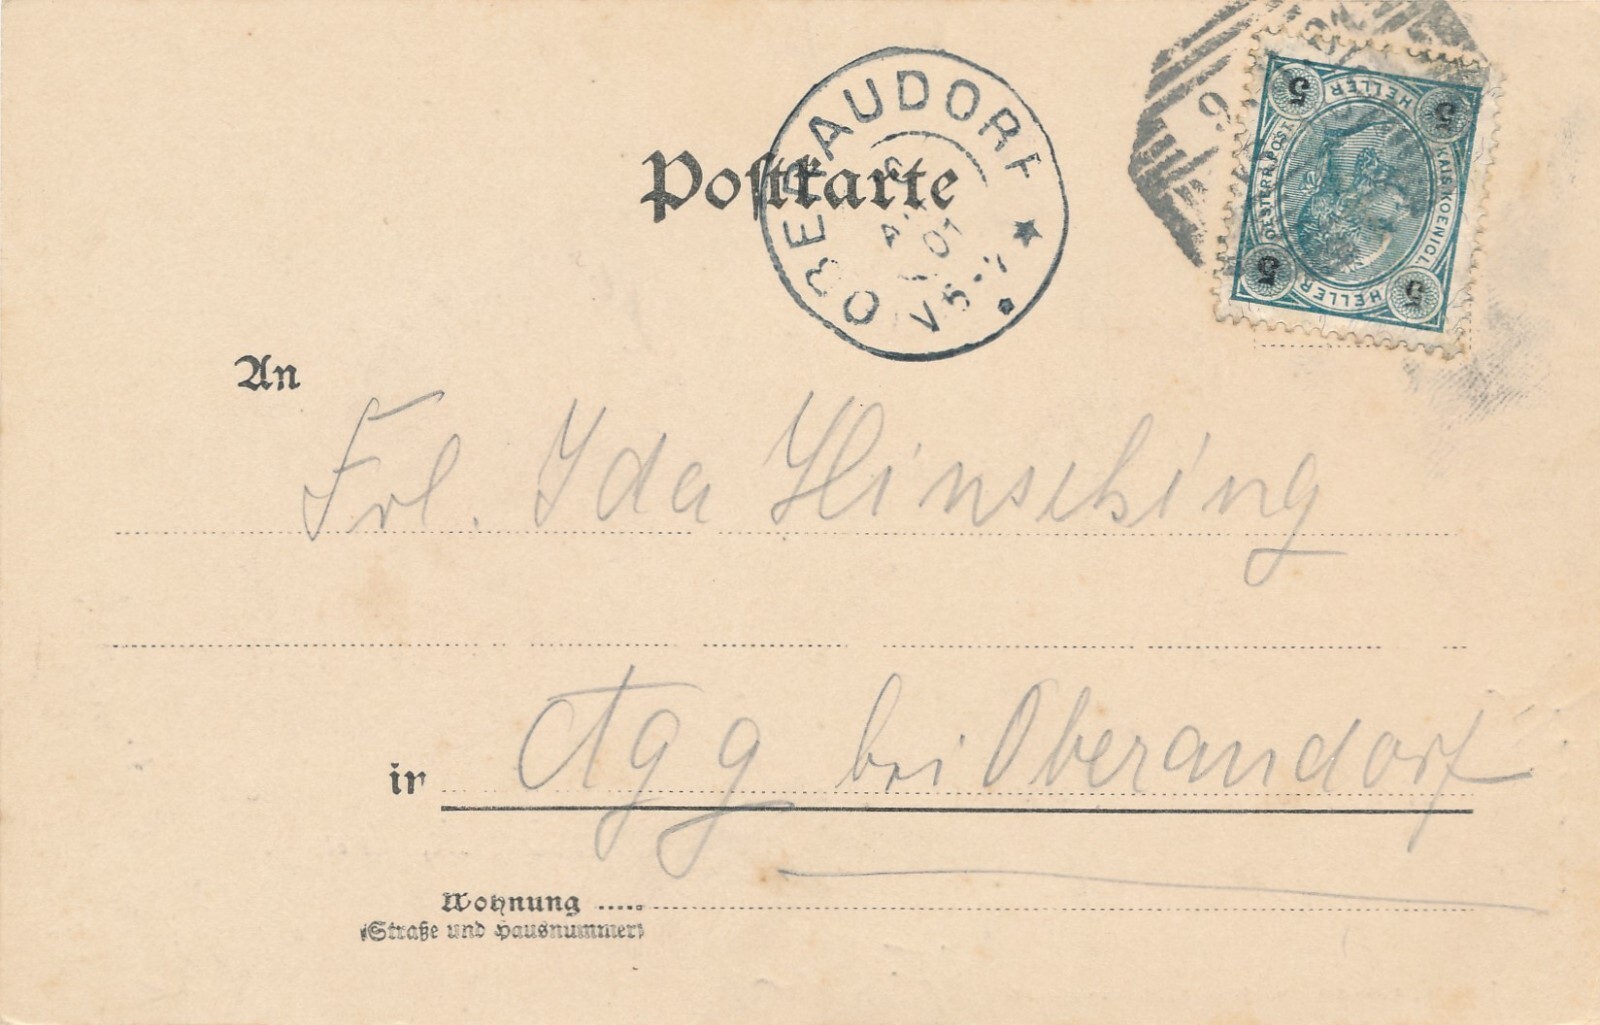 Postkarte
OBERAUDORF
01
V 5-7
9
5 HELLER 5
OESTERR. POST. KAIS. KOENIGL.
5 HELLER 5
An
Frl. Ida Hinsching
in Agg bei Oberaudorf
Wohnung
(Straße und Hausnummer)